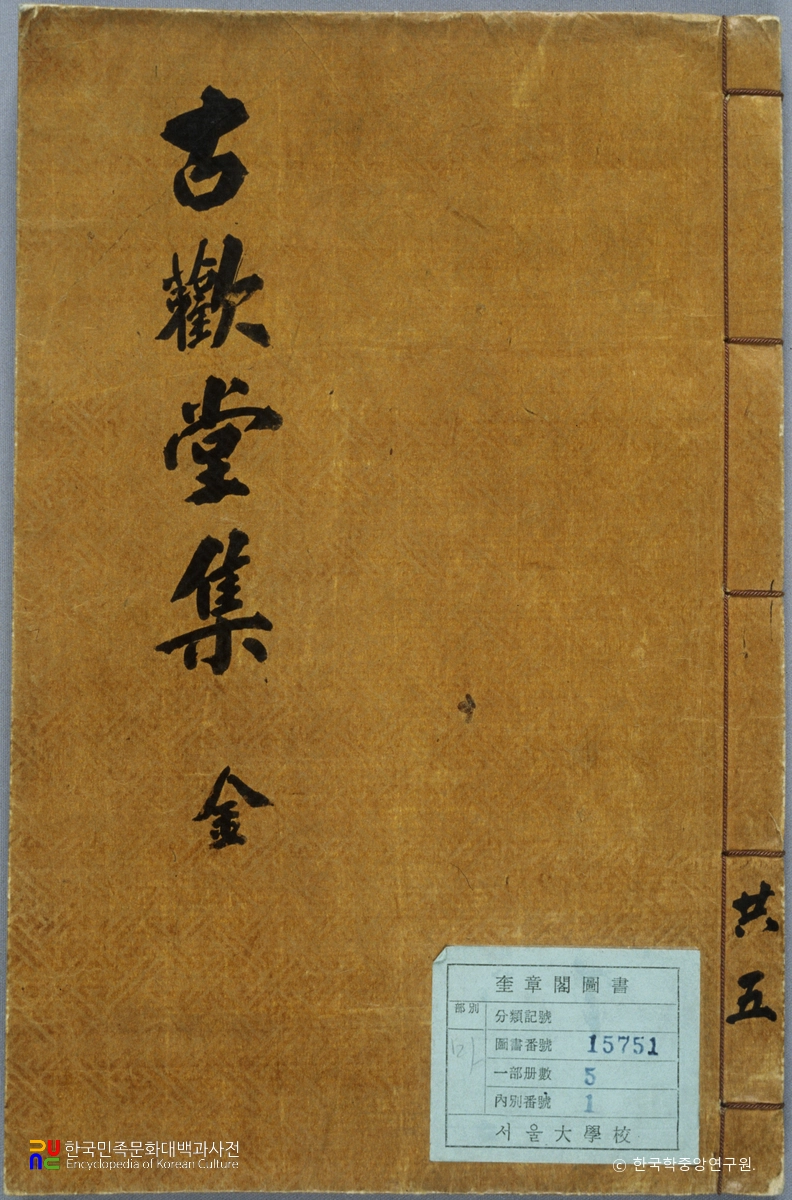 古歡堂集 金
共五
奎章閣圖書
部別
分類記號
圖書番號 15751
一部册數 5
內別番號 1
서울大學校
한국민족문화대백과사전
Encyclopedia of Korean Culture
© 한국학중앙연구원